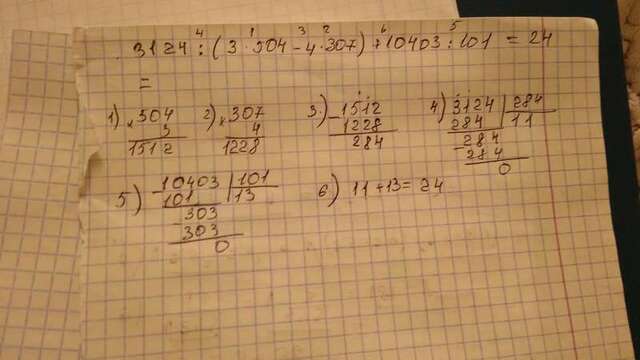 3124 : (3 · 504 - 4 · 307) + 10403 : 101 = 24
4 1 3 2 6 5
=
1) × 504 2) × 307 3) - 1512 4) 3124 | 284
3 4 1228 284 11
1512 1228 284 - 284
284
0
5) - 10403 | 101 6) 11 + 13 = 24
101 13
- 303
303
0